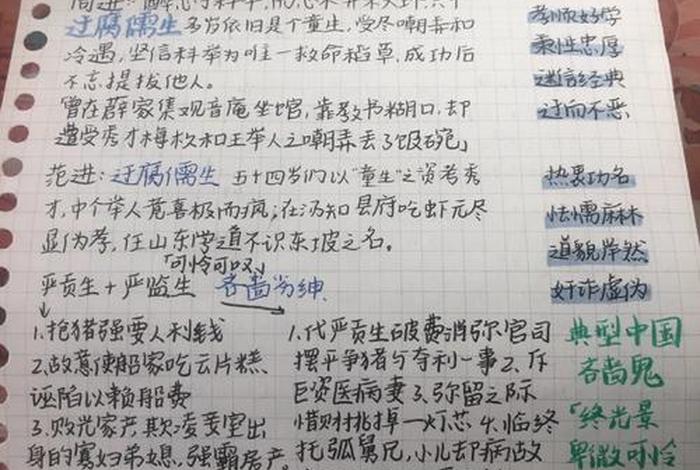 周进：
孝顺好学
迂腐儒生 多岁依旧是个童生，受尽嘲弄和
柔性忠厚
冷遇，坚信科举为唯一救命稻草，成功后
不忘提拔他人。
迷信经典
曾在薛家集观音庵坐馆，靠教书糊口，却
迂而不恶
遭受秀才梅玖和王举人之嘲弄丢了饭碗」
范进：迂腐儒生 五十四岁们以“童生”之资考秀
热衷功名
才，中个举人竟喜极而疯；在汤知县府吃虾元尽
怯懦麻木
显伪孝，任山东学道不识东坡之名。
道貌岸然
「可怜可叹」
严贡生+严监生 吝啬劣绅
奸诈虚伪
1.抢猪强要人利钱
2.故意使船家吃云片糕、
诬陷以赖船费
3.败光家产，欺凌妾室出
身的寡妇弟媳，强霸房产。
1.代严贡生破费消弥官司
摆平争猪与夺利一事 2.斥
巨资医病妻 3.弥留之际
惜财挑掉一灯芯 4.临终
托孤舅兄，小儿却病故
典型中国
吝啬鬼
「终光景
卑微可怜